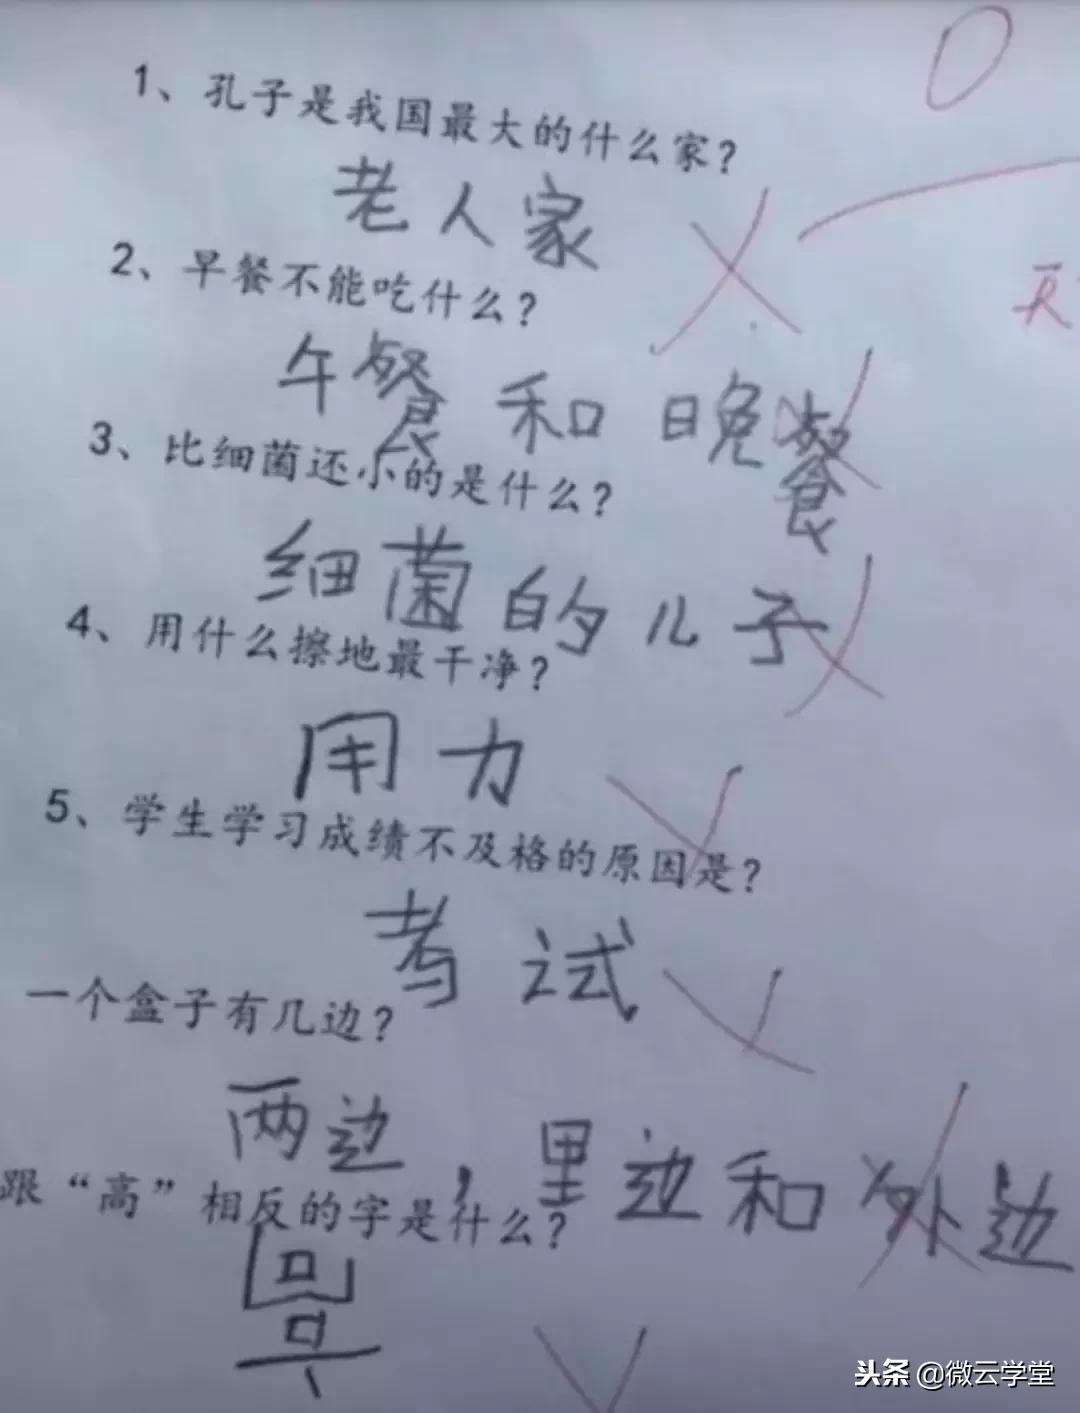 1、孔子是我国最大的什么家？
老人家
2、早餐不能吃什么？
午餐和晚餐
3、比细菌还小的是什么？
细菌的儿子
4、用什么擦地最干净？
用力
5、学生学习成绩不及格的原因是？
考试
一个盒子有几边？
两边，里边和外边
跟“高”相反的字是什么？
0
头条 @微云学堂